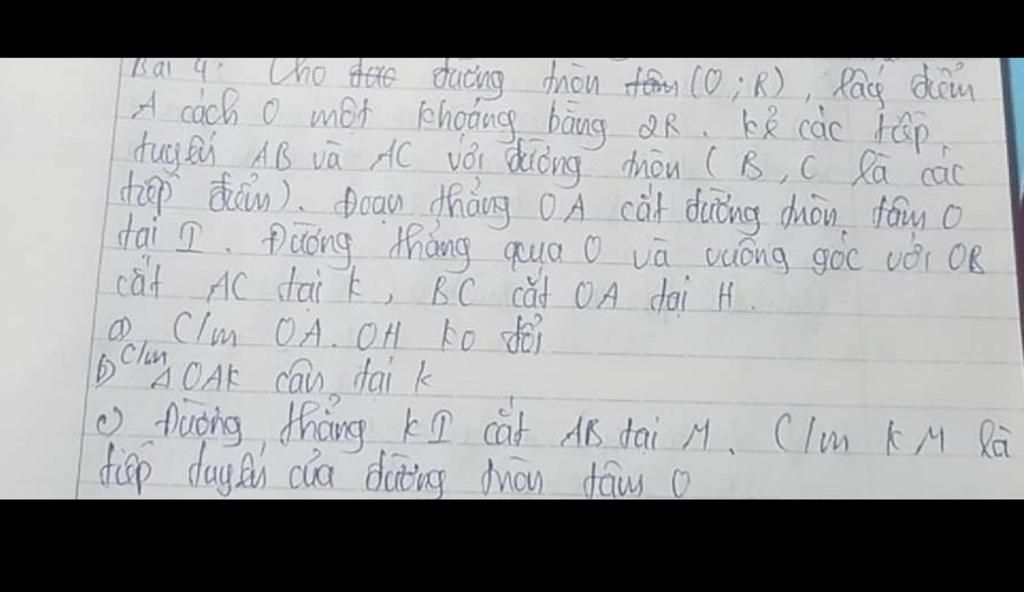 Bài 4: Cho đườ đường tròn tâm (O; R), lấy điểm
A cách O một khoảng bằng 2R. kẻ các tiếp
tuyến AB và AC với đường tròn (B, C là các
tiếp điểm). Đoạn thẳng OA cắt đường tròn tâm O
tại I. Đường thẳng qua O và vuông góc với OB
cắt AC tại k, BC cắt OA tại H.
a) C/m OA.OH ko đổi
b) C/m Δ OAK cân tại k
c) Đường thẳng kI cắt AB tại M. C/m KM là
tiếp tuyến của đường tròn tâm O